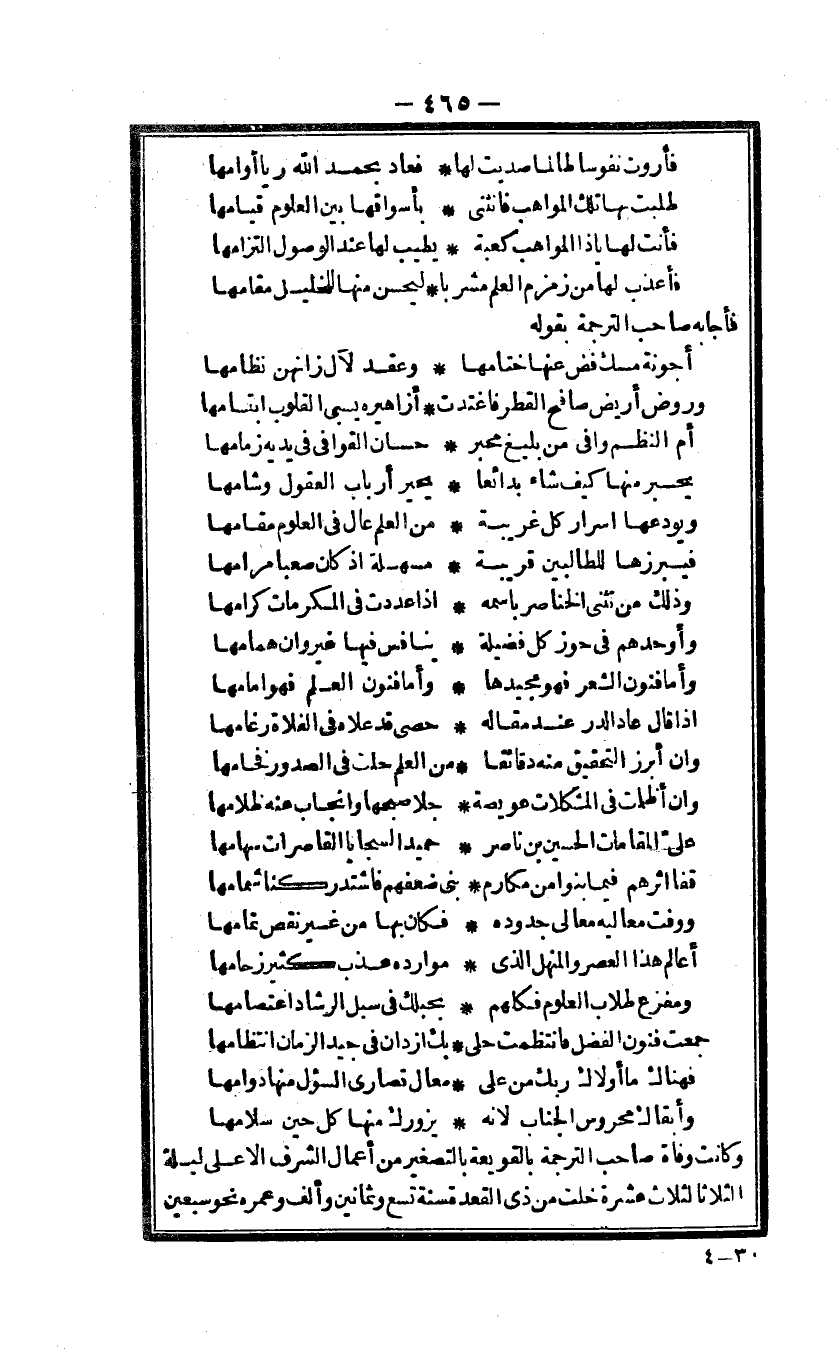 — ٤٦٥ —
فأروت نفوسا طالما صديت لها * فعاد بحمد الله ريا أوامها
طلبت بها تلك المواهب فانثنى * بأسواقها بين العلوم قيامها
فأنت لها ياذا المواهب كعبة * يطيب لها عند الوصول التزامها
فأعذب لها من زمزم العلم مشربا * ليحسن منها للخليل مقامها
فأجابه صاحب الترجمة بقوله
أجونة مسك فض عنها ختامها * وعقد لآل زانهن نظامها
وروض أريض صافح القطر فاغتدت * أزاهيره يسبي القلوب ابتسامها
أم النظم وافى من بليغ محبر * حسان القوافى فى يديه زمامها
يحبر منها كيف شاء بدائعا * يحير أرباب العقول وشامها
ويودعها اسرار كل غريبة * من العلم عال فى العلوم مقامها
فيبرزها للطالبين قريبة * مسهلة اذ كان صعبا مرامها
وذلك من تثنى الخناصر باسمه * اذا عددت فى المكرمات كرامها
وأوحدهم فى حوز كل فضيلة * ينافس فيها غيروان همامها
وأما فنون الشعر فهو مجيدها * وأما فنون العلم فهو امامها
اذا قال عاد الدر عند مقاله * حصى قد علاه فى الفلاة رغامها
وان أبرز التحقيق منه دقائقا * من العلم حلت فى الصدور فخامها
وان أظلمات فى المشكلات عويصة * جلا صبحها وانجاب عنه ظلامها
علىّ المقامات الحسين بن ناصر * حميد السجايا القاصرات سهامها
قفا اثرهم فيما بنوا من مكارم * بنى ضعفهم فاشتد ركنا شمامها
ووفت معاليه معالى جدوده * فكان بها من غير نقص تمامها
أعالم هذا العصر والمنهل الذى * موارده عذب كثير زحامها
ومفزع طلاب العلوم فكلهم * بحبلك فى سبل الرشاد اعتصامها
جمعت فنون الفضل فانتظمت حلى * بك ازدان فى جيد الزمان انتظامها
فهناك ما أولاك ربك من على * معال قصارى السؤل منها دوامها
وأبقاك محروس الجناب لانه * يزورك منها كل حين سلامها
وكانت وفاة صاحب الترجمة بالقويعة بالتصغير من أعمال الشرف الاعلى ليلة
الثلاثا لثلاث عشرة خلت من ذى القعدة سنة تسع وثمانين وألف وعمره نحو سبعين
٣٠ — ٤